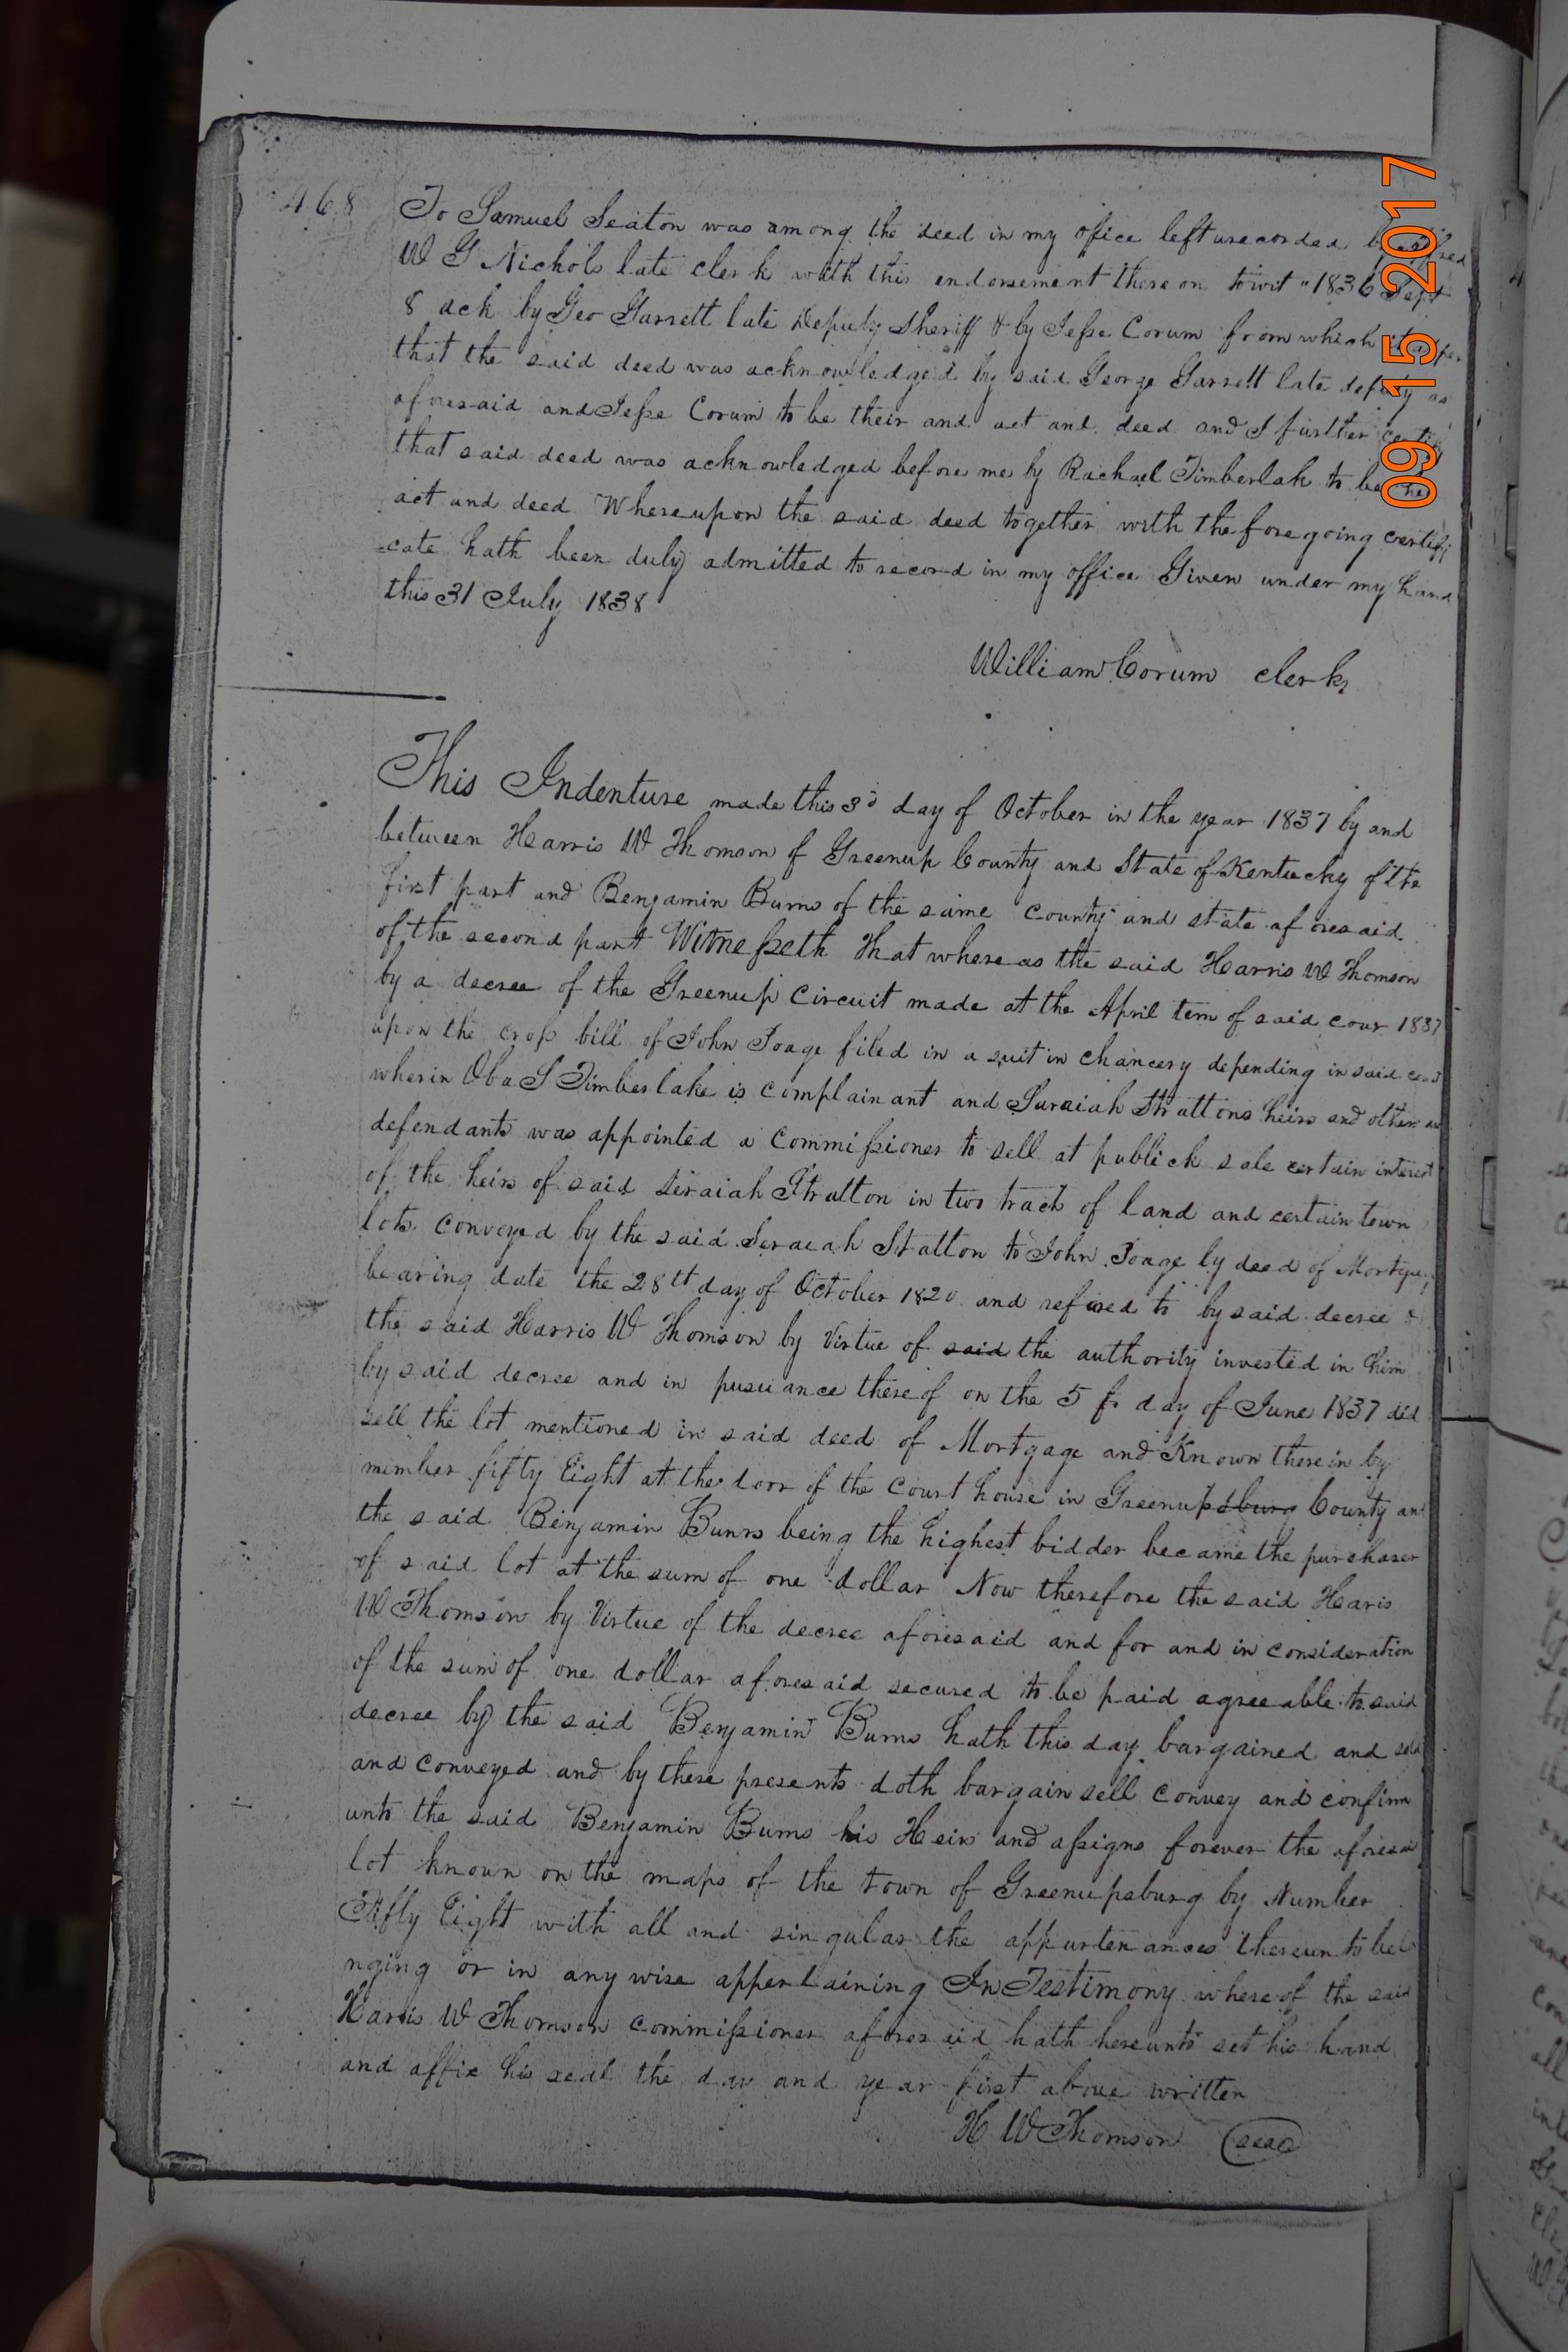 468
To Samuel Seaton was among the deed in my office left urecorded by
W G Nichols late clerk with this endorsement there on towit "1836 Sept
8 ack by Geo Garrett late Deputy Sheriff & by Jesse Corum from which it
that the said deed was acknowledged by said George Garrett late deputy as
aforesaid and Jesse Corum to be their and act and deed and I further
that said deed was acknowledged before me by Rachael Timberlak to be
act and deed Whereupon the said deed together with the foregoing certifi
cate hath been duly admitted to record in my office Given under my hand
this 31 July 1838
William Corum clerk
This Indenture made this 3d day of October in the year 1837 by and
between Harris W Thomson of Greenup County and State of Kentucky of the
first part and Benjamin Burns of the same county and state aforesaid
of the second part Witnesseth That whereas the said Harris W Thomson
by a decree of the Greenup Circuit made at the April tem of said cour 1837
upon the cross bill of John Poage filed in a suit in chancery depending in said
wherin Oba S Timberlake is complainant and Suraiah Strattons heirs and others
defendants was appointed a Commissioner to sell at publick sale certain interest
of the heirs of said Seraiah Stratton in two track of land and certain town
lots conveyed by the said Seraiah Statton to John Poage by deed of
bearing date the 28th day of October 1820 and refered to by said decree &
the said Harris W Thomson by Virtue of said the authority invested in him
by said decree and in pusuance thereof on the 5 day of June 1837 did
sell the lot mentioned in said deed of Mortgage and Known therein by
member fifty Eight at the door of the court house in Greenupsburg County
the said Benjamin Bunrs being the highest bidder became the purchaser
of said lot at the sum of one dollar Now therefore the said Haris
W Thomson by Virtue of the decree aforesaid and for and in consideration
of the sum of one dollar aforesaid secured to be paid agreeable to said
decree by the said Benjamin Burns hath this day bargained and sold
and conveyed and by these presents doth bargain sell convey and confirm
unto the said Benjamin Burns his Heirs and assigns forever the
lot known on the maps of the town of Greenupsburg by Number
Fifty Eight with all and singular the appurtenances thereunto belo
nging or in any wise appertaining In Testimony whereof the said
Harris W Thomson commissioner aforesaid hath hereunto set his hand
and affix his seal the day and year first above written
H W Thomson seal
09 15 2017